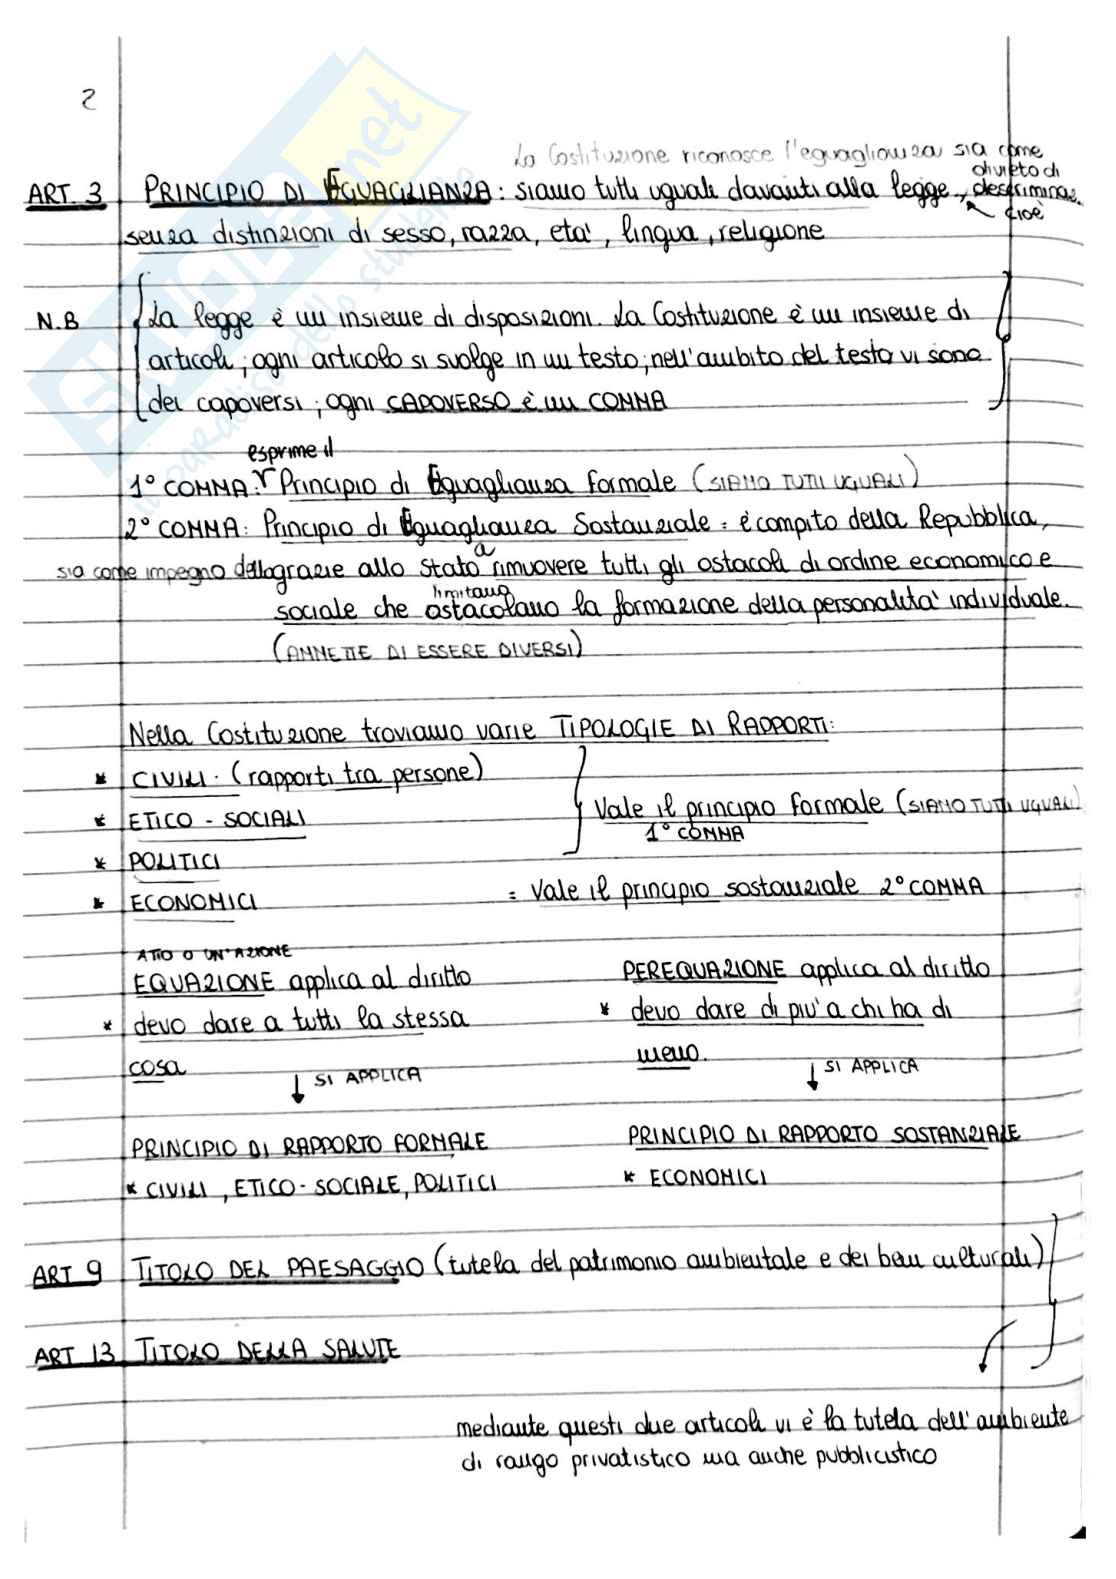 2
La Costituzione riconosce l'eguaglianza sia come
divieto di
ART. 3 PRINCIPIO DI EGUAGLIANZA: siamo tutti uguali davanti alla legge, descriminaz.
cioè
senza distinzioni di sesso, razza, eta', lingua, religione
N.B La legge è un insieme di disposizioni. La Costituzione è un insieme di
articoli; ogni articolo si svolge in un testo; nell'ambito del testo vi sono
dei capoversi; ogni CAPOVERSO è un COMMA
esprime il
1° COMMA: Principio di Eguaglianza formale (SIAMO TUTTI UGUALI)
2° COMMA: Principio di Eguaglianza Sostanziale: è compito della Repubblica,
a
sia come impegno dello grazie allo Stato rimuovere tutti gli ostacoli di ordine economico e
limitano
sociale che ostacolano la formazione della personalita' individuale.
(AMMETTE DI ESSERE DIVERSI)
Nella Costituzione troviamo varie TIPOLOGIE DI RAPPORTI:
* CIVILI. (rapporti tra persone)
* ETICO - SOCIALI Vale il principio formale (SIAMO TUTTI UGUALI)
1° COMMA
* POLITICI
* ECONOMICI = Vale il principio sostanziale 2° COMMA
ATTO O UN'AZIONE
EQUAZIONE applica al diritto PEREQUAZIONE applica al diritto
* devo dare a tutti la stessa * devo dare di piu' a chi ha di
cosa meno.
↓ SI APPLICA ↓ SI APPLICA
PRINCIPIO DI RAPPORTO FORMALE PRINCIPIO DI RAPPORTO SOSTANZIALE
* CIVILI, ETICO-SOCIALE, POLITICI * ECONOMICI
ART 9 TITOLO DEL PAESAGGIO (tutela del patrimonio ambientale e dei beni culturali)
ART 13 TITOLO DELLA SALUTE
mediante questi due articoli vi è la tutela dell'ambiente
di rango privatistico ma anche pubblicistico